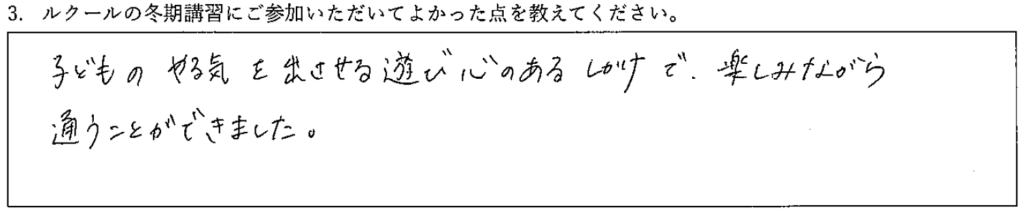 3. ルクールの冬期講習にご参加いただいてよかった点を教えてください。
子どものやる気を出させる遊び心のあるしかけで、楽しみながら
通うことができました。